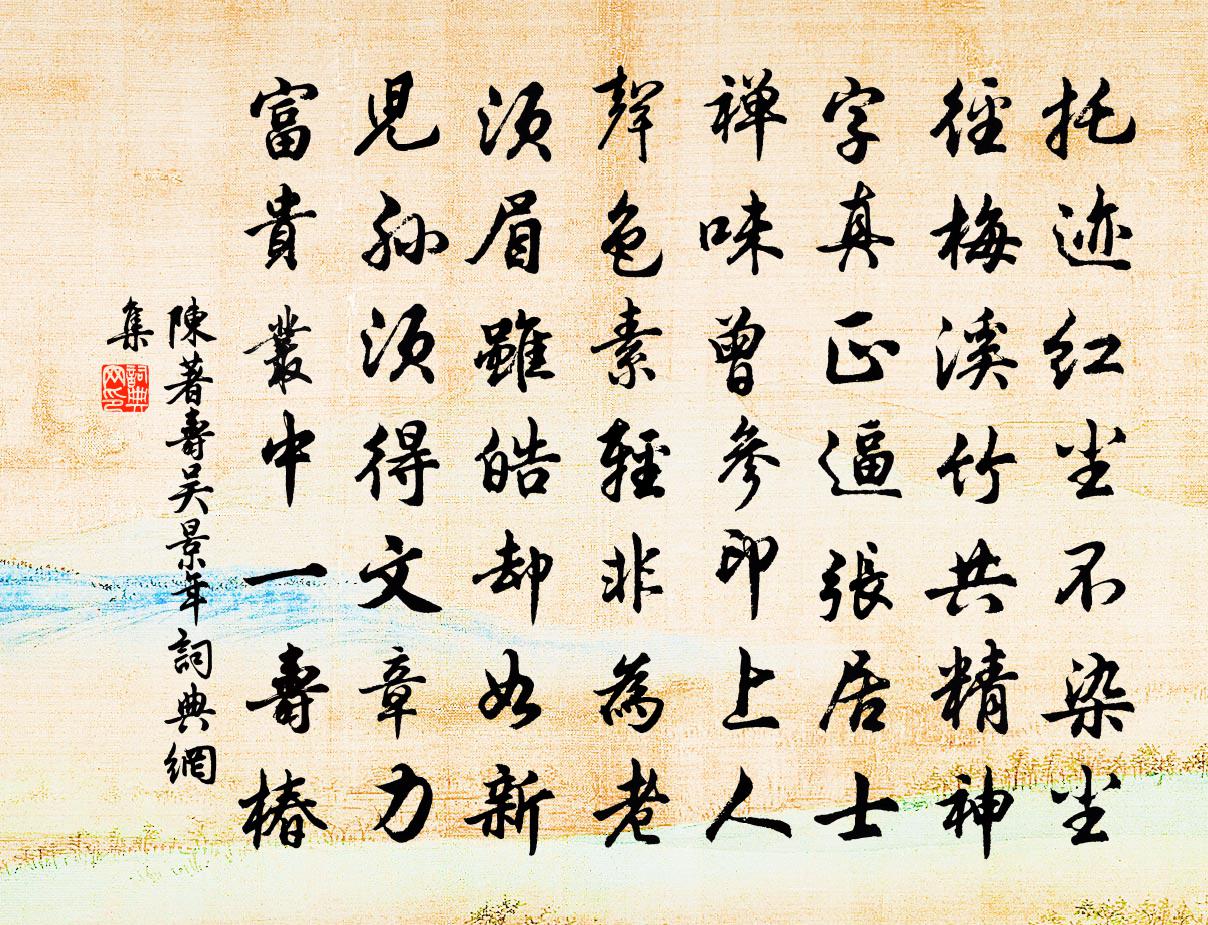 托迹红尘不染尘
径梅溪竹共精神
字真正逼張居士
禅味曾參印上人
聲色素輕非為老
须眉雖皓却如新
児孙须得文章力
富貴叢中一壽椿
陳著壽吴景年詞典網
集
詞典
网印